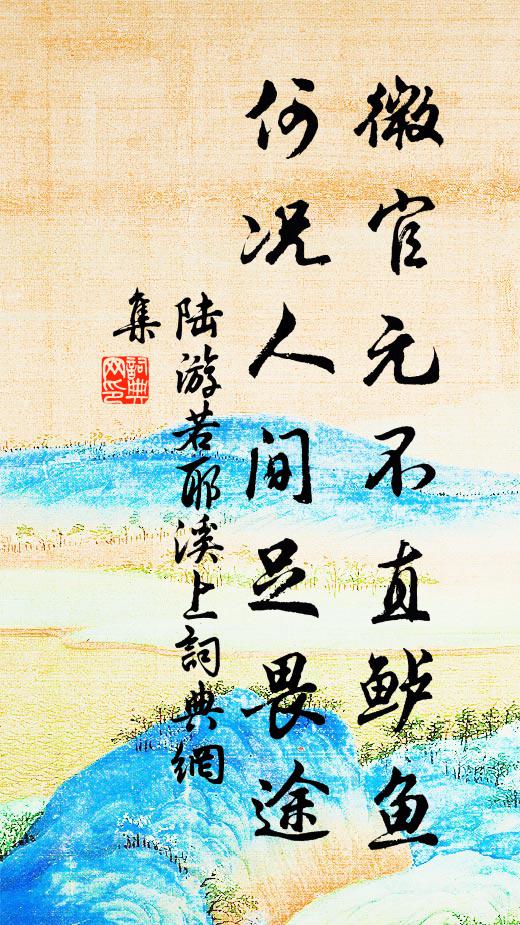 微官元不直鲈鱼
何况人间足畏途
陆游若耶溪上詞典網
集
詞典
网印